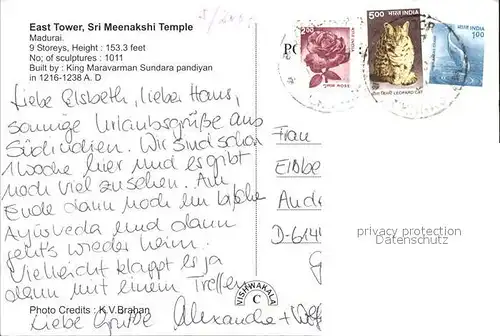 5/2001
East Tower, Sri Meenakshi Temple
Madurai.
9 Storeys, Height : 153.3 feet
No; of sculptures : 1011
Built by : King Maravarman Sundara pandiyan
in 1216-1238 A. D
Liebe Elsbeth, lieber Hans,
sonnige Urlaubsgrüße aus
Südindien. Wir sind schon
1 Woche hier und es gibt
noch viel zu sehen. Am
Ende dann noch ein bißche
Ayurveda und dann
geht's wieder heim.
Vielleicht klappt es ja
dann mit einem Treffen
Photo Credits : K.V.Brahan
Liebe Grüße Alexandra +
VISHWAKALA
C
2.00
भारत INDIA
गुलाब ROSE
5.00
भारत INDIA
LEOPARD CAT
भारत INDIA
1.00
PO
Frau
Elsbe
Andr
D-614
G
privacy protection
Datenschutz